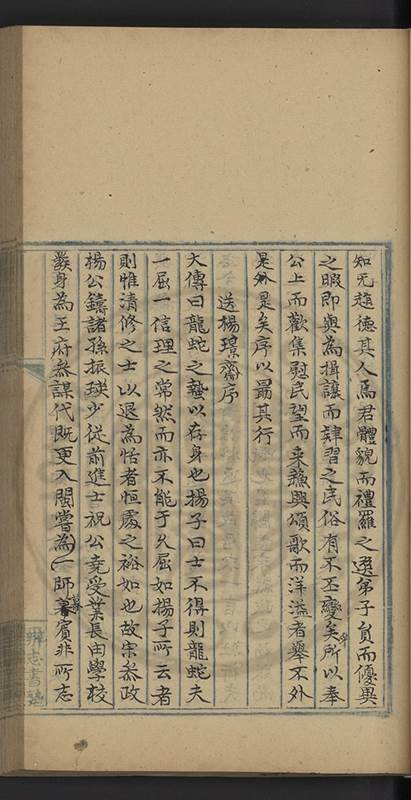 知无趙德其人焉君體貌而禮羅之選弟子員而優異
之暇即與為揖讓而肄習之民俗有不丕變矣乎所以奉
公上而歡集慰民望而來漁興頌歌而洋溢者舉不外
是外是矣序以勗其行
送楊璟齋序
大傳曰龍蛇之蟄以存身也揚子曰士不得則龍蛇夫
一屈一信理之常然而亦不能于久屈如揚子所云者
則惟清修之士以退為恬者恒處之裕如也故宋叅政
楊公鑄諸孫振瑛少從前進士祝公堯受業長由學校
發身為王府叅謀代既更入閩嘗為一師幕賓非所志
辨志書塾